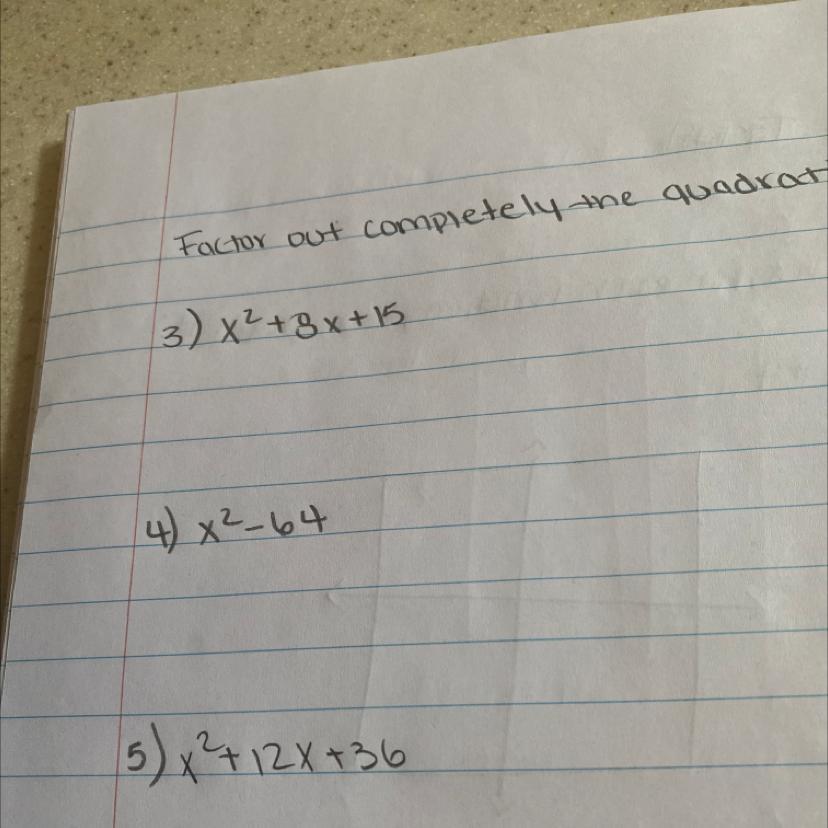 Factor out completely the quadrat
3) x²+8x+15
4) x²-64
5) x²+12x+36